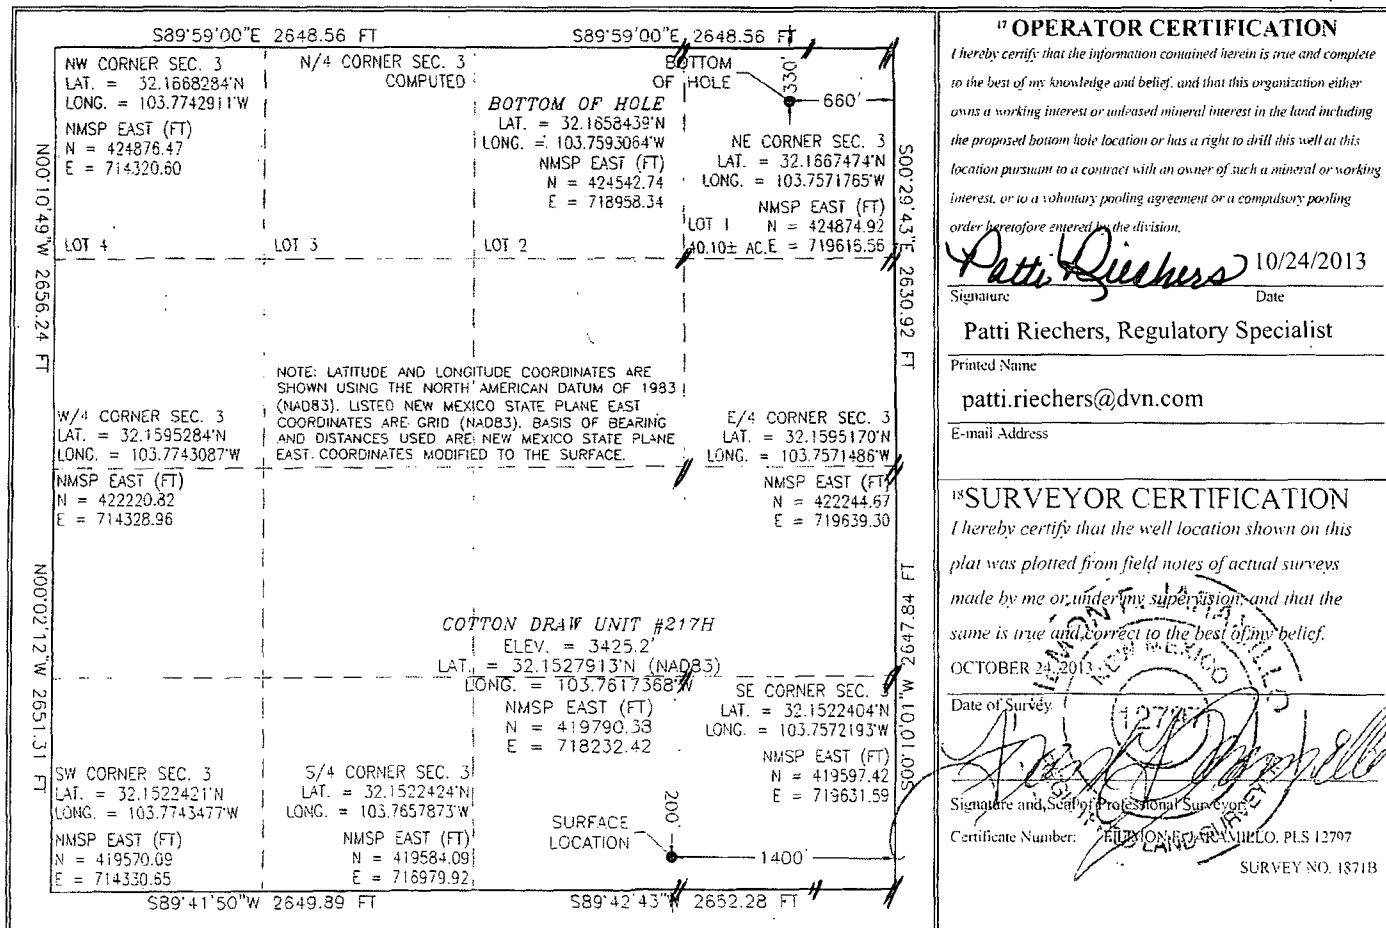 S89°59'00"E 2648.56 FT
S89°59'00"E 2648.56 FT
NW CORNER SEC. 3
LAT. = 32.1668284°N
LONG. = 103.7742911°W
NMSP EAST (FT)
N = 424876.47
E = 714320.60
N/4 CORNER SEC. 3
COMPUTED
BOTTOM OF HOLE
LAT. = 32.1658439°N
LONG. = 103.7593064°W
NMSP EAST (FT)
N = 424542.74
E = 718958.34
BOTTOM
OF HOLE
330'
660'
NE CORNER SEC. 3
LAT. = 32.1667474°N
LONG. = 103.7571765°W
NMSP EAST (FT)
N = 424874.92
E = 719615.56
LOT 4
LOT 3
LOT 2
LOT 1
40.10± AC.
N00°10'49"W 2656.24 FT
S00°29'43"E 2630.92 FT
NOTE: LATITUDE AND LONGITUDE COORDINATES ARE
SHOWN USING THE NORTH AMERICAN DATUM OF 1983
(NAD83). LISTED NEW MEXICO STATE PLANE EAST
COORDINATES ARE GRID (NAD83). BASIS OF BEARING
AND DISTANCES USED ARE NEW MEXICO STATE PLANE
EAST COORDINATES MODIFIED TO THE SURFACE.
W/4 CORNER SEC. 3
LAT. = 32.1595284°N
LONG. = 103.7743087°W
NMSP EAST (FT)
N = 422220.82
E = 714328.96
E/4 CORNER SEC. 3
LAT. = 32.1595170°N
LONG. = 103.7571486°W
NMSP EAST (FT)
N = 422244.67
E = 719639.30
N00°02'12"W 2651.31 FT
S00°10'01"W 2647.84 FT
COTTON DRAW UNIT #217H
ELEV. = 3425.2'
LAT. = 32.1527913°N (NAD83)
LONG. = 103.7617368°W
NMSP EAST (FT)
N = 419790.33
E = 718232.42
SE CORNER SEC. 3
LAT. = 32.1522404°N
LONG. = 103.7572193°W
NMSP EAST (FT)
N = 419597.42
E = 719631.59
SW CORNER SEC. 3
LAT. = 32.1522421°N
LONG. = 103.7743477°W
NMSP EAST (FT)
N = 419570.09
E = 714330.65
S/4 CORNER SEC. 3
LAT. = 32.1522424°N
LONG. = 103.7657873°W
NMSP EAST (FT)
N = 419584.09
E = 716979.92
SURFACE
LOCATION
200'
1400'
S89°41'50"W 2649.89 FT
S89°42'43"W 2652.28 FT
17 OPERATOR CERTIFICATION
I hereby certify that the information contained herein is true and complete
to the best of my knowledge and belief, and that this organization either
owns a working interest or unleased mineral interest in the land including
the proposed bottom hole location or has a right to drill this well at this
location pursuant to a contract with an owner of such a mineral or working
interest, or to a voluntary pooling agreement or a compulsory pooling
order heretofore entered by the division.
Patti Riechers 10/24/2013
Signature Date
Patti Riechers, Regulatory Specialist
Printed Name
patti.riechers@dvn.com
E-mail Address
18 SURVEYOR CERTIFICATION
I hereby certify that the well location shown on this
plat was plotted from field notes of actual surveys
made by me or under my supervision, and that the
same is true and correct to the best of my belief.
OCTOBER 24, 2013
Date of Survey
NEW MEXICO
12797
Signature and Seal of Professional Surveyor:
Certificate Number: FILIMON F. JARAMILLO, PLS 12797
SURVEY NO. 1871B